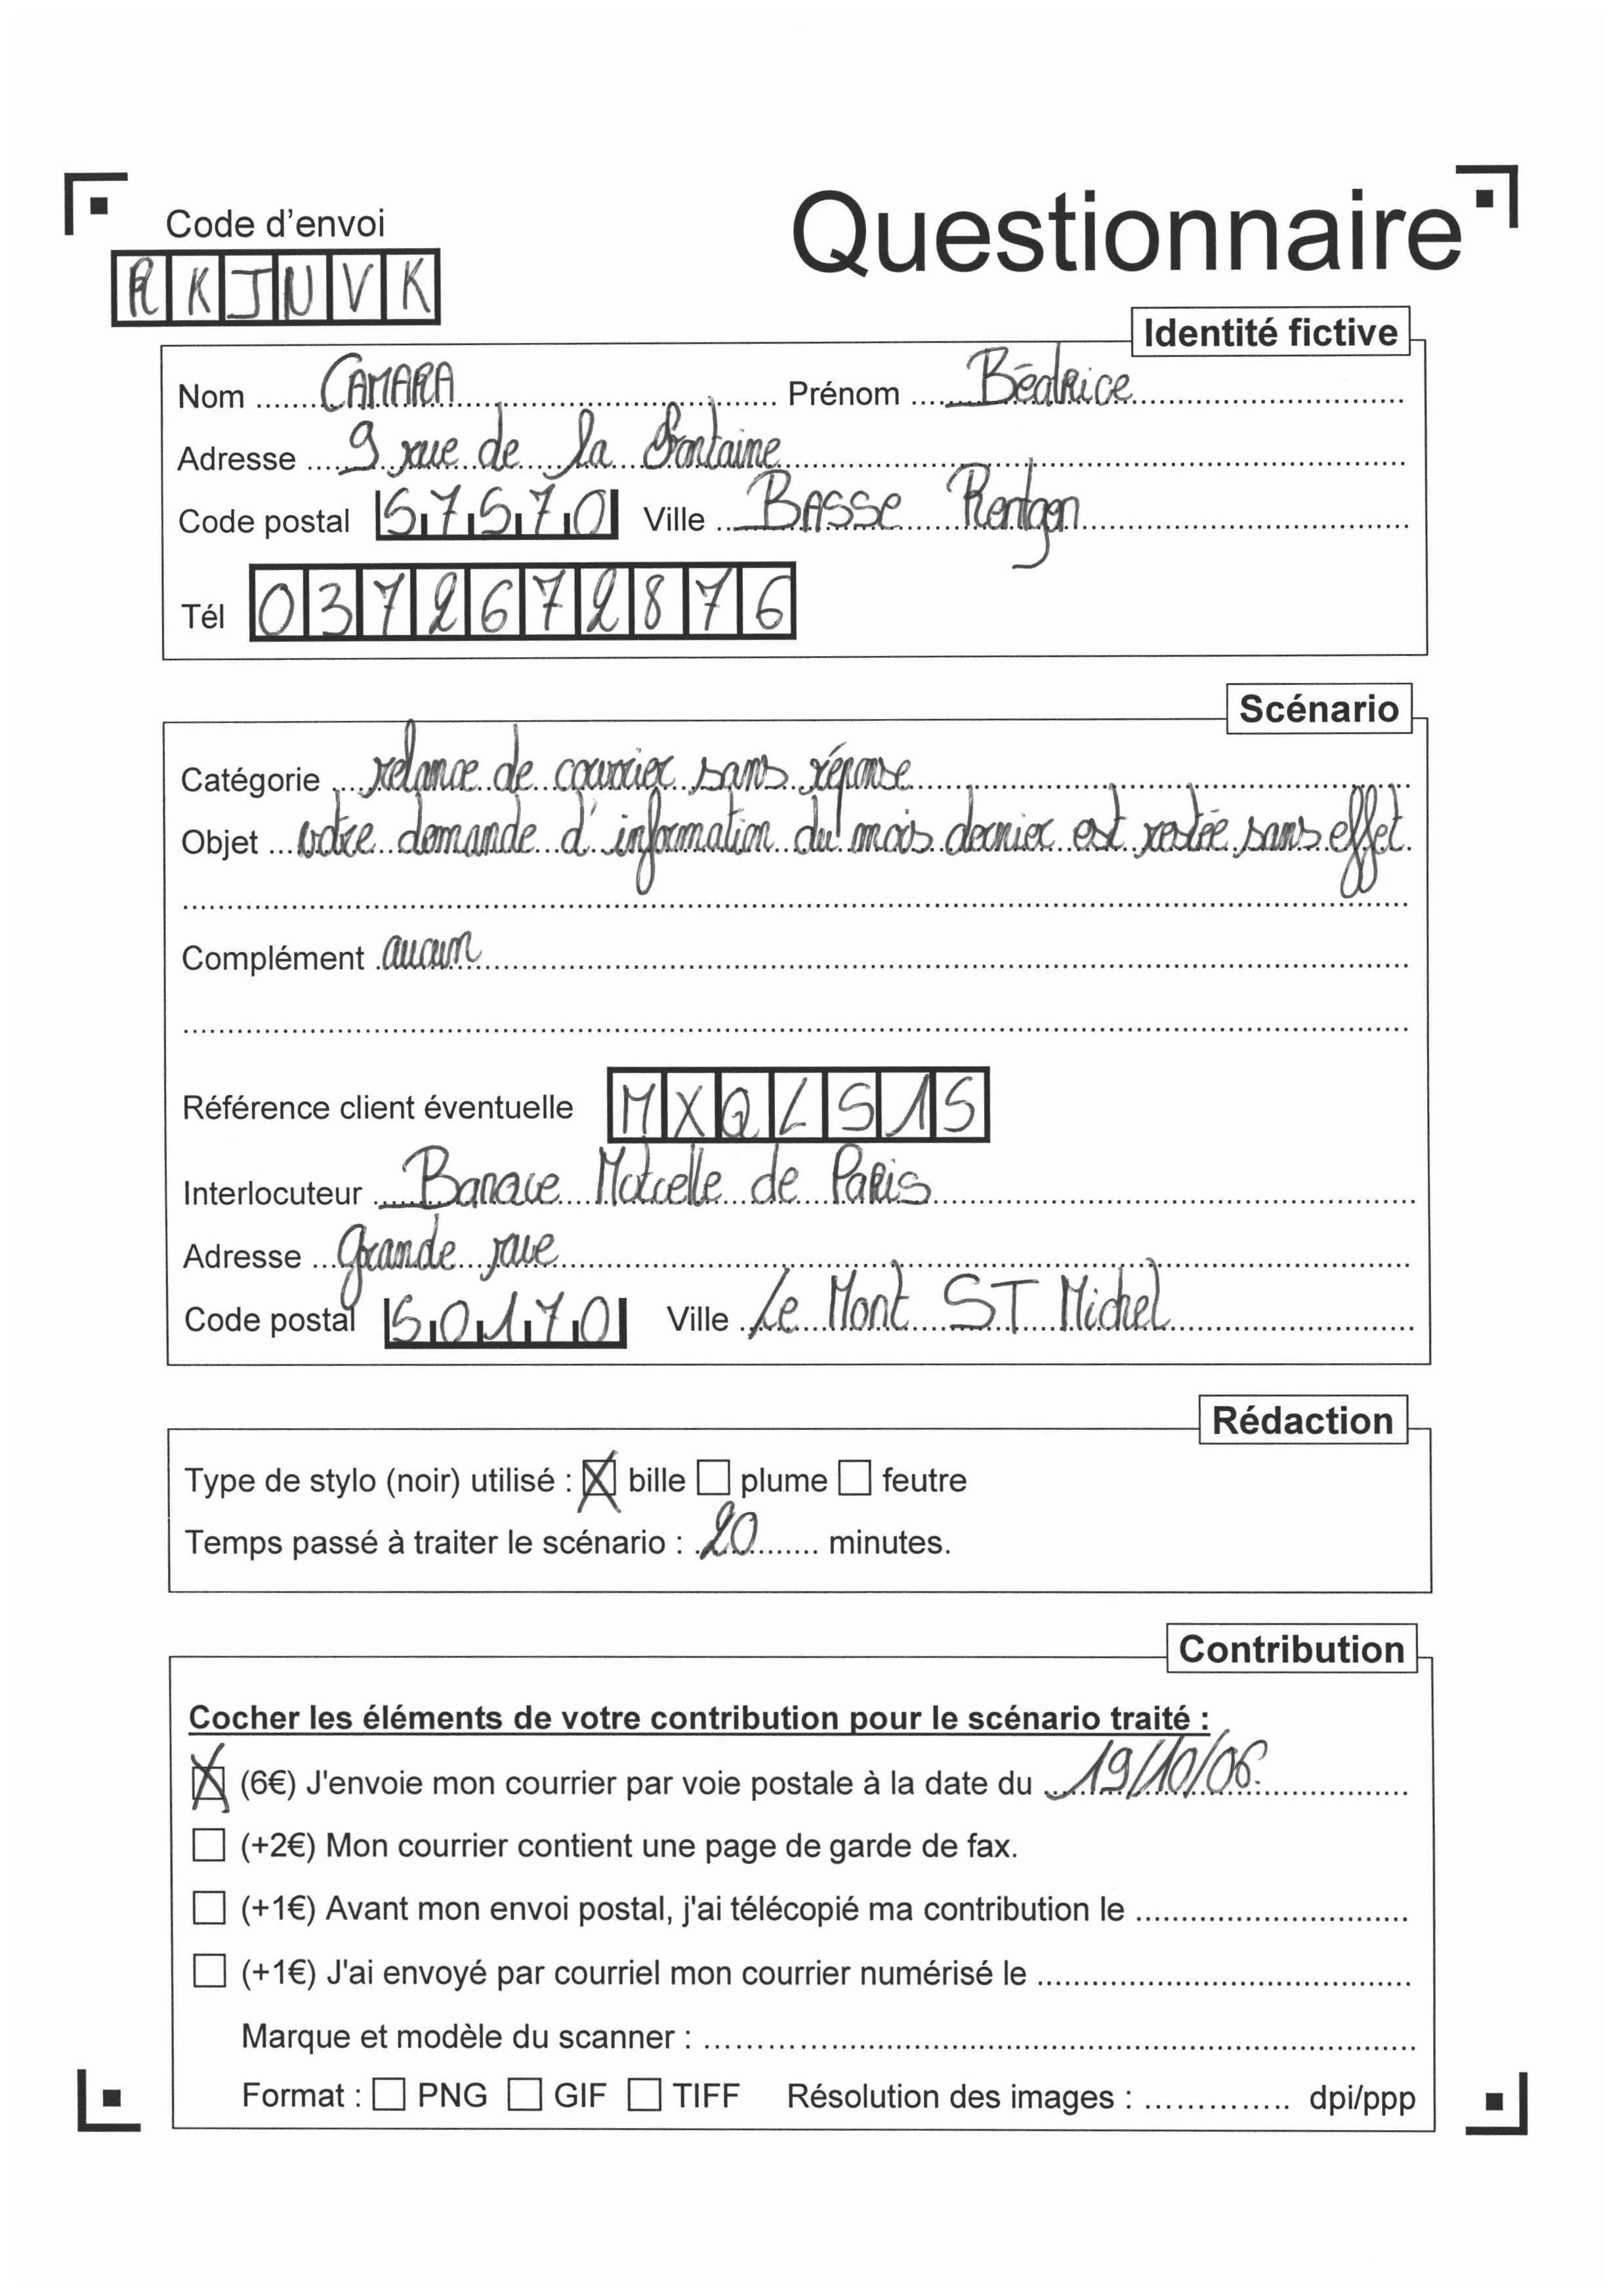 Code d'envoi
Questionnaire
RKJNVK
Identité fictive
Nom CAMARA Prénom Béatrice
Adresse 9 rue de la fontaine
Code postal 57570 Ville BASSE Rentgen
Tél 0372672876
Scénario
Catégorie relance de courrier sans réponse
Objet votre demande d'information du mois dernier est restée sans effet
Complément aucun
Référence client éventuelle MXQLS15
Interlocuteur Banque Mutuelle de Paris
Adresse Grande rue
Code postal 50170 Ville Le Mont ST Michel
Rédaction
Type de stylo (noir) utilisé : bille plume feutre
Temps passé à traiter le scénario : 20 minutes.
Contribution
Cocher les éléments de votre contribution pour le scénario traité :
(6€) J'envoie mon courrier par voie postale à la date du 19/10/06.
(+2€) Mon courrier contient une page de garde de fax.
(+1€) Avant mon envoi postal, j'ai télécopié ma contribution le
(+1€) J'ai envoyé par courriel mon courrier numérisé le
Marque et modèle du scanner :
Format : PNG GIF TIFF Résolution des images : dpi/ppp